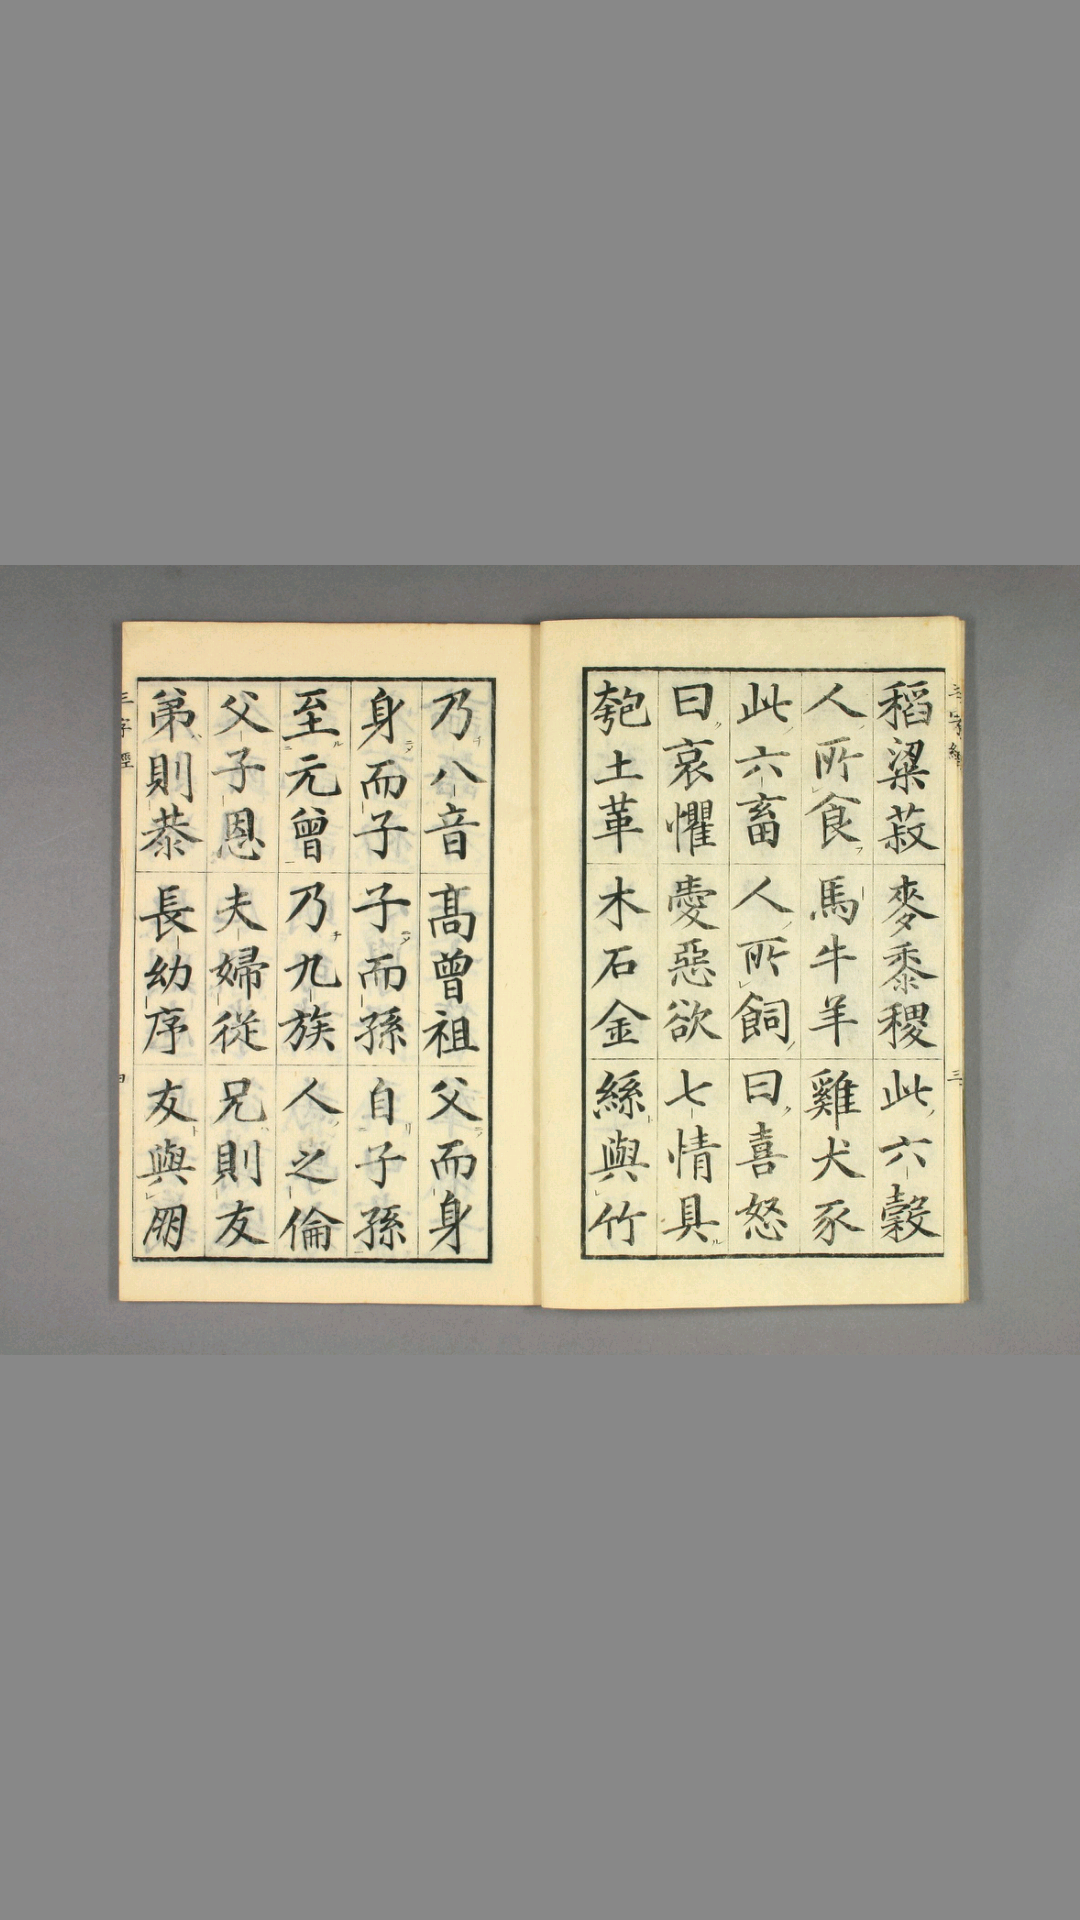 稻粱菽麥黍稷此六穀
人所食馬牛羊雞犬豕
此六畜人所飼曰喜怒
曰哀懼愛惡欲七情具
匏土革木石金絲與竹
乃八音高曾祖父而身
身而子子而孫自子孫
至元曾乃九族人之倫
父子恩夫婦從兄則友
弟則恭長幼序友與朋
三字經